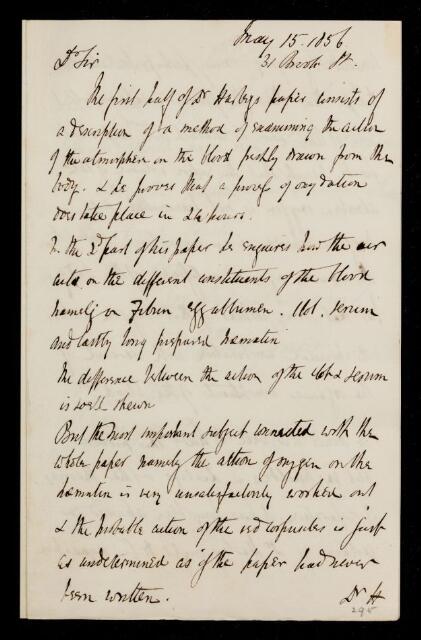 May 15. 1856
31 Brook St.
Dr Sir
The first half of Dr Harley's paper consists of
a description of a method of examining the action
of the atmosphere on the blood freshly drawn from the
body. & he proves that a process of oxydation
does take place in 24 hours.
In the 2d part of his paper he enquires how the air
acts on the different constituents of the blood
namely on Fibrin egg albumen. Clot. serum
and lastly long prepared hæmatin
The difference between the action of the clot & serum
is well shewn
But the most important subject connected with the
whole paper namely the action of oxygen on the
hæmatin is very unsatisfactorily worked out
& the probable action of the red corpuscles is just
as undetermined as if the paper had never
been written.
Dr H
295